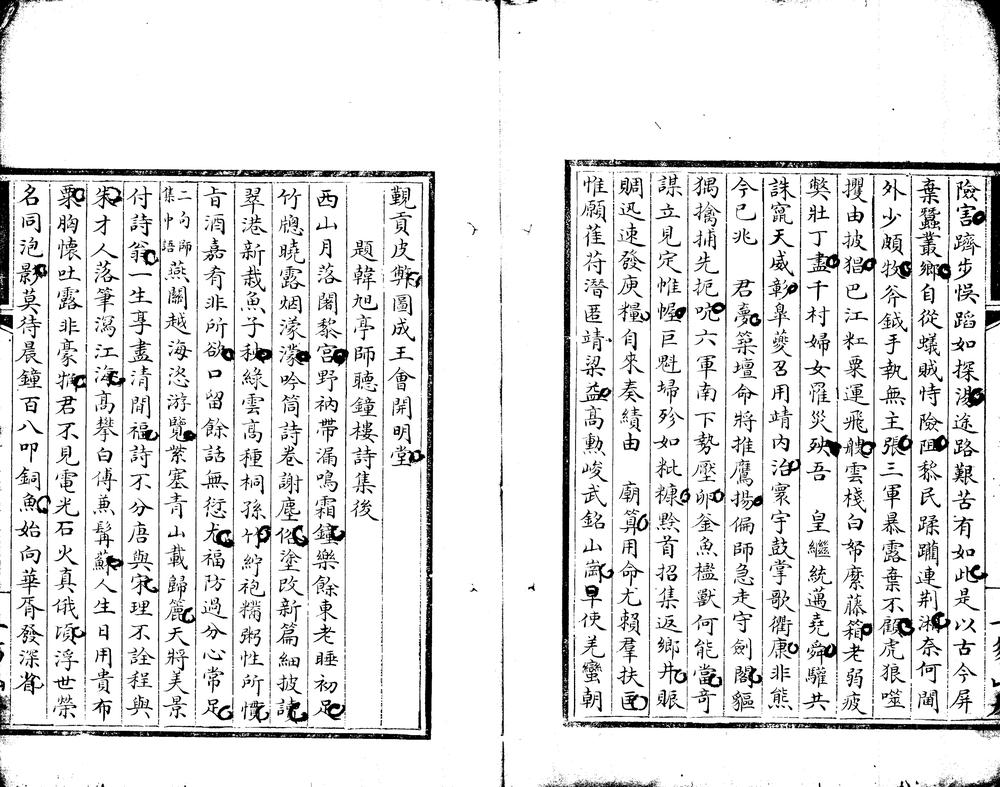 險害躋步悞蹈如探湯途路艱苦有如此是以古今屏
棄蠶叢鄉自從蟻賊恃險阻黎民蹂躪連荆湘奈何閫
外少頗牧斧鉞手執無主張三軍暴露棄不顧虎狼噬
攫由披猖巴江粒粟運飛艘雲棧白帑縻藤箱老弱疲
弊壯丁盡千村婦女罹災殃吾　皇繼統邁堯舜驩共
誅竄天威彰臯夔召用靖内治寰宇鼓掌歌衢康非熊
今已兆　君夢築壇命將推鷹揚偏師急走守劍閣軀
獨擒捕先扼吭六軍南下勢壓卵釜魚檻獸何能當奇
謀立見定惟幄巨魁埽殄如粃糠黔首招集返鄉井賑
賙迅速發庾糧自來奏績由　廟算用命尤賴羣扶匡
惟願萑苻潛匿靖梁益高勳峻武銘山崗早使羌蠻朝
覲貢皮幣圖成王會開明堂
題韓旭亭師聽鐘樓詩集後
西山月落闍黎宮野衲帶漏鳴霜鐘樂餘東老睡初足
竹牕曉露烟濛濛吟筒詩卷謝塵俗塗改新篇細披讀
翠港新栽魚子秧綠雲高種桐孫竹紵袍糲粥性所慣
旨酒嘉肴非所欲口留餘話無愆尤福防過分心常足
二句師集中語燕關越海恣游覽紫塞青山載歸簏天將美景
付詩翁一生享盡清閒福詩不分唐與宋理不詮程與
朱才人落筆瀉江海高攀白傅兼髯蘇人生日用貴布
粟胸懷吐露非豪猾君不見電光石火真俄頃浮世榮
名同泡影莫待晨鐘百八叩銅魚始向華胥發深省